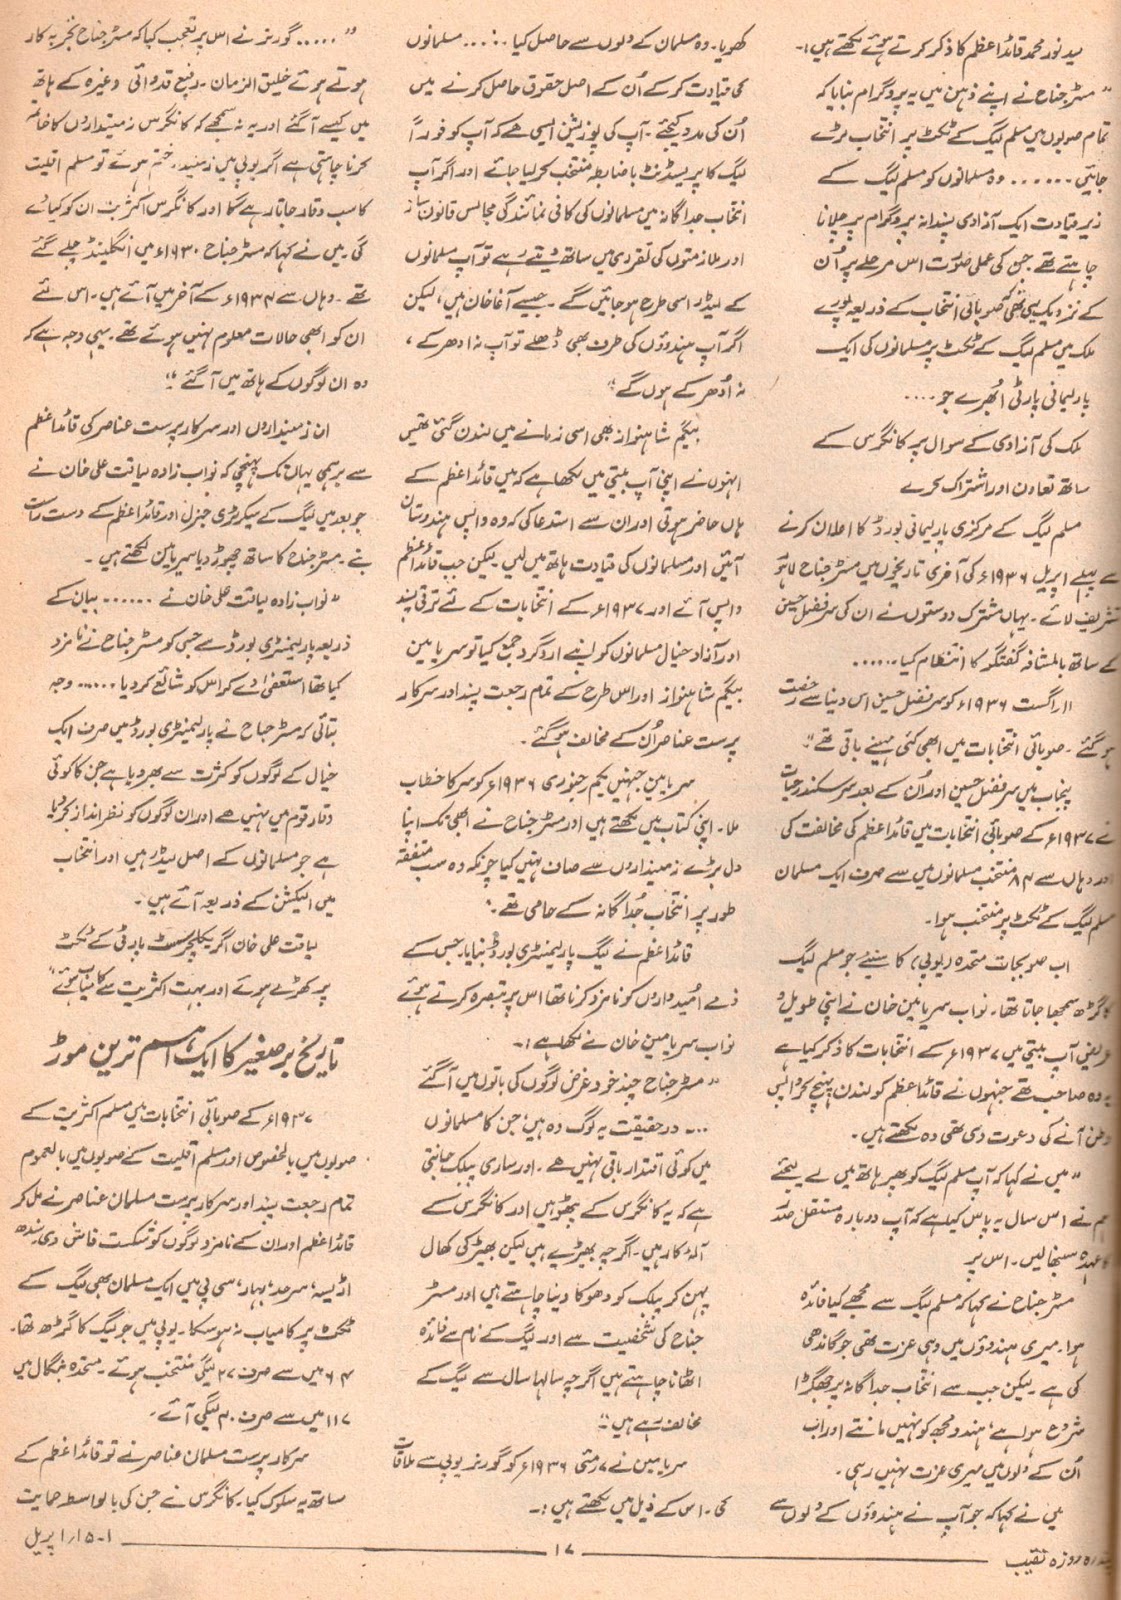 سید نور محمد قائداعظم کا ذکر کرتے ہوئے لکھتے ہیں :۔
" مسٹر جناح نے اپنے ذہن میں یہ پروگرام بنایا کہ
تمام صوبوں میں مسلم لیگ کے ٹکٹ پر انتخاب لڑے
جائیں ۔۔۔۔۔۔ وہ مسلمانوں کو مسلم لیگ کے
زیر قیادت ایک آزادی پسندانہ پروگرام پر چلانا
چاہتے تھے۔ جس کی عملی صورت اس مرحلے پر اُن
کے نزدیک یہی تھی کہ صوبائی انتخاب کے ذریعہ پورے
ملک میں مسلم لیگ کے ٹکٹ پر مسلمانوں کی ایک
پارلیمانی پارٹی اُبھرے جو ۔۔۔۔
ملک کی آزادی کے سوال پر کانگرس کے
ساتھ تعاون اور اشتراک کرے
مسلم لیگ کے مرکزی پارلیمانی بورڈ کا اعلان کرنے
سے پہلے اپریل ۱۹۳۶ء کی آخری تاریخوں میں مسٹر جناح لاہور
تشریف لائے۔ یہاں مشترک دوستوں نے ان کی سر فضل حسین
کے ساتھ بالمشافہ گفتگو کا انتظام کیا ۔۔۔۔۔
۱۱ر اگست ۱۹۳۶ء کو سر فضل حسین اس دنیا سے رخصت
ہو گئے۔ صوبائی انتخابات میں ابھی کئی مہینے باقی تھے "
پنجاب میں سر فضل حسین اور اُن کے بعد سر سکندر حیات
نے ۱۹۳۷ء کے صوبائی انتخابات میں قائداعظم کی مخالفت کی
اور وہاں سے ۸۴ منتخب مسلمانوں میں سے صرف ایک مسلمان
مسلم لیگ کے ٹکٹ پر منتخب ہوا۔
اب صوبجات متحدہ (یوپی) کا سنئے جو مسلم لیگ
کا گڑھ سمجھا جاتا تھا۔ نواب سر یامین خان نے اپنی طویل و
عریض آپ بیتی میں ۱۹۳۷ء کے انتخابات کا ذکر کیا ہے
یہ وہ صاحب تھے جنہوں نے قائداعظم کو لندن پہنچ کر واپس
وطن آنے کی دعوت دی تھی وہ لکھتے ہیں۔
" میں نے کہا کہ آپ مسلم لیگ کو پھر ہاتھ میں لے لیجئے
ہم نے اس سال یہ پاس کیا ہے کہ آپ دوبارہ مستقل صدر
کا عہدہ سنبھالیں۔ اس پر
مسٹر جناح نے کہا کہ مسلم لیگ سے مجھے کیا فائدہ
ہوا۔ میری ہندوؤں میں وہی عزت تھی جو گاندھی
کی ہے۔ لیکن جب سے انتخاب جداگانہ پر جھگڑا
شروع ہوا ہے، ہندو مجھ کو نہیں مانتے اور اب
اُن کے دلوں میں میری عزت نہیں رہی۔
میں نے کہا کہ جو آپ نے ہندوؤں کے دلوں سے
کھویا۔ وہ مسلمان کے دلوں سے حاصل کیا ۔۔۔۔۔ مسلمانوں
کی قیادت کر کے اُن کے اصل حقوق حاصل کرنے میں
اُن کی مدد کیجئے۔ آپ کی پوزیشن ایسی ہے کہ آپ کو فوراً
لیگ کا پریسیڈنٹ باضابطہ منتخب کر لیا جائے اور اگر آپ
انتخاب جداگانہ میں مسلمانوں کی کافی نمائندگی مجالس قانون ساز
اور ملازمتوں کی تقرری میں ساتھ دیتے رہے تو آپ مسلمانوں
کے لیڈر اسی طرح ہو جائیں گے۔ جیسے آغا خان ہیں، لیکن
اگر آپ ہندوؤں کی طرف بھی ڈھلے تو آپ نہ ادھر کے،
نہ اُدھر کے ہوں گے "
بیگم شاہنواز بھی اسی زمانے میں لندن گئی تھیں
انہوں نے اپنی آپ بیتی میں لکھا ہے کہ میں قائداعظم کے
ہاں حاضر ہوئی اور ان سے استدعا کی کہ وہ واپس ہندوستان
آئیں اور مسلمانوں کی قیادت ہاتھ میں لیں۔ لیکن جب قائداعظم
واپس آئے اور ۱۹۳۷ء کے انتخابات کے لئے ترقی پسند
اور آزاد خیال مسلمانوں کو اپنے اردگرد جمع کیا تو سر یامین
بیگم شاہنواز اور اس طرح کے تمام رجعت پسند اور سرکار
پرست عناصر اُن کے مخالف ہو گئے۔
سر یامین جنہیں یکم جنوری ۱۹۳۶ء کو سر کا خطاب
ملا۔ اپنی کتاب میں لکھتے ہیں اور مسٹر جناح نے ابھی تک اپنا
دل بڑے زمینداروں سے صاف نہیں کیا چونکہ وہ سب متفقہ
طور پر انتخاب جُداگانہ کے حامی تھے۔"
قائداعظم نے لیگ پارلیمنٹری بورڈ بنایا۔ جس کے
ذمے اُمیدواروں کو نامزد کرنا تھا اس پر تبصرہ کرتے ہوئے
نواب سر یامین خان نے لکھا ہے :۔
" مسٹر جناح چند خود غرض لوگوں کی باتوں میں آ گئے
۔۔۔ درحقیقت یہ لوگ وہ ہیں؛ جن کا مسلمانوں
میں کوئی اقتدار باقی نہیں ہے۔ اور ساری پبلک جانتی
ہے کہ یہ کانگرس کے پٹھو ہیں اور کانگرس کے
آلۂ کار ہیں۔ اگرچہ بھیڑیے ہیں لیکن بھیڑ کی کھال
پہن کر پبلک کو دھوکا دینا چاہتے ہیں اور مسٹر
جناح کی شخصیت سے اور لیگ کے نام سے فائدہ
اٹھانا چاہتے ہیں اگرچہ سالہا سال سے لیگ کے
مخالف رہے ہیں "
سر یامین نے ۷ر مئی ۱۹۳۶ء کو گورنر یوپی سے ملاقات
کی۔ اس کے ذیل میں لکھتے ہیں :۔
" ۔۔۔۔۔ گورنر نے اس پر تعجب کیا کہ مسٹر جناح تجربہ کار
ہوتے ہوئے خلیق الزمان۔ رفیع قدوائی وغیرہ کے ہاتھ
میں کیسے آ گئے اور یہ نہ سمجھے کہ کانگرس زمینداروں کا خاتمہ
کرنا چاہتی ہے اگر یوپی میں زمیندار ختم ہوئے تو مسلم اقلیت
کا سب وقار جاتا رہے گا اور کانگرس اکثریت ان کو کھا لے
گی۔ میں نے کہا کہ مسٹر جناح ۱۹۳۰ء میں انگلینڈ چلے گئے
تھے۔ وہاں سے ۱۹۳۴ء کے آخر میں آئے ہیں۔ اس لئے
ان کو ابھی حالات معلوم نہیں ہوئے تھے۔ یہی وجہ ہے کہ
وہ ان لوگوں کے ہاتھ میں آ گئے "
ان زمینداروں اور سرکار پرست عناصر کی قائداعظم
سے برہمی یہاں تک پہنچی کہ نواب زادہ لیاقت علی خان نے
جو بعد میں لیگ کے سیکرٹری جنرل اور قائداعظم کے دست راست
بنے۔ مسٹر جناح کا ساتھ چھوڑ دیا سر یامین لکھتے ہیں۔
" نواب زادہ لیاقت علی خان نے ۔۔۔۔۔۔ بیان کے
ذریعہ پارلیمنٹری بورڈ سے جس کو مسٹر جناح نے نامزد
کیا تھا استعفیٰ دے کر اس کو شائع کر دیا ۔۔۔۔۔ وجہ
بتائی کہ مسٹر جناح نے پارلیمنٹری بورڈ میں صرف ایک
خیال کے لوگوں کو کثرت سے بھر دیا ہے جن کا کوئی
وقار قوم میں نہیں ہے اور ان لوگوں کو نظر انداز کر دیا
ہے جو مسلمانوں کے اصل لیڈر ہیں اور انتخاب
میں الیکشن کے ذریعہ آئے ہیں۔
لیاقت علی خان ایگریکلچرسٹ پارٹی کے ٹکٹ
پر کھڑے ہوئے اور بہت اکثریت سے کامیاب ہوئے "
تاریخ برصغیر کا ایک اہم ترین موڑ
۱۹۳۷ء کے صوبائی انتخابات میں مسلم اکثریت کے
صوبوں میں بالخصوص اور مسلم اقلیت کے صوبوں میں بالعموم
تمام رجعت پسند اور سرکار پرست مسلمان عناصر نے مل کر
قائداعظم اور ان کے نامزد لوگوں کو شکست فاش دی۔ سندھ
اڑیسہ، سرحد، بہار، سی پی میں ایک مسلمان بھی لیگ کے
ٹکٹ پر کامیاب نہ ہو سکا۔ یوپی میں جو لیگ کا گڑھ تھا۔
۶۴ میں سے صرف ۲۷ لیگی منتخب ہوئے۔ متحدہ بنگال میں
۱۱۷ میں سے صرف ۴۰ لیگی آئے۔
سرکار پرست مسلمان عناصر نے تو قائداعظم کے
ساتھ یہ سلوک کیا۔ کانگرس نے جن کی بالواسطہ حمایت
پندرہ روزہ نقیب
۱۷
۱۔۱۵ر اپریل